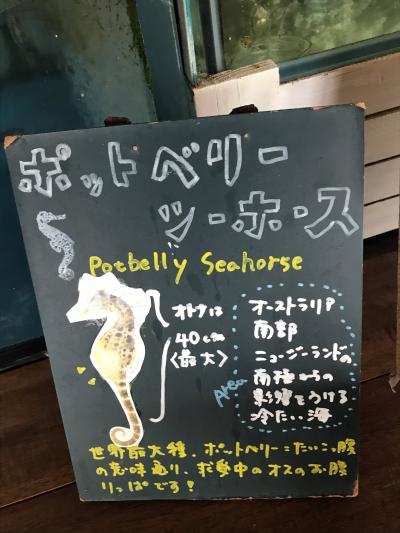 ポットベリー
シーホース
Potbelly Seahorse
オトナは
40cm
〈最大〉
Area
オーストラリア
南部
ニュージーランドの
南極からの
影響をうける
冷たい海
世界最大種。ポットベリー=たいこ腹
の意味通り、求愛中のオスのお腹
りっぱです!